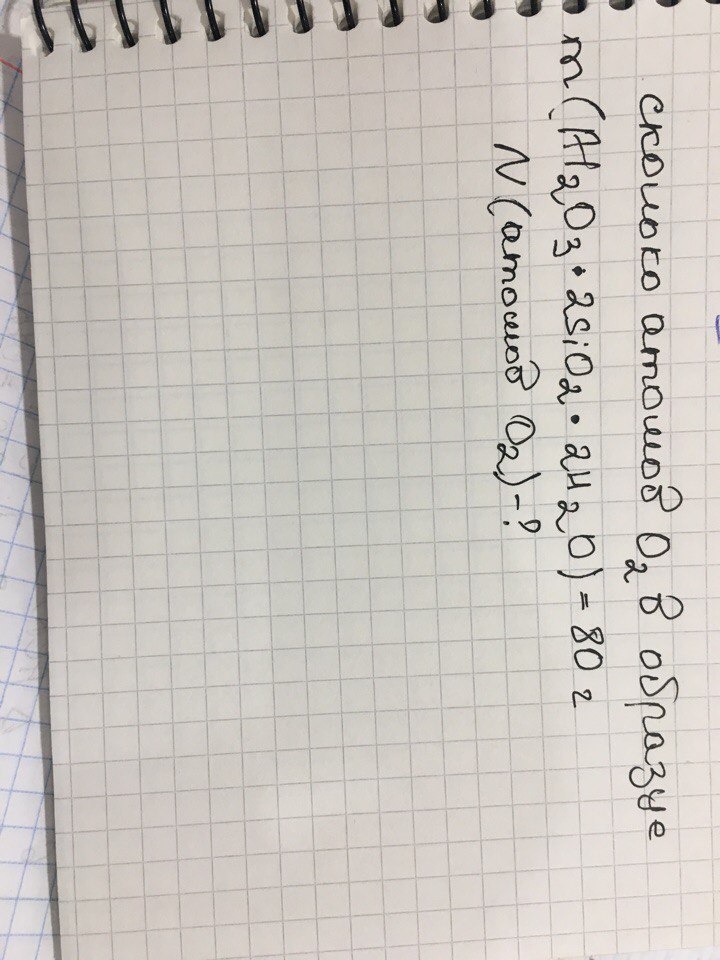 сколько атомов O₂ в образце
m(Al₂O₃·2SiO₂·2H₂O)=80 г
N(атомов O₂)-?